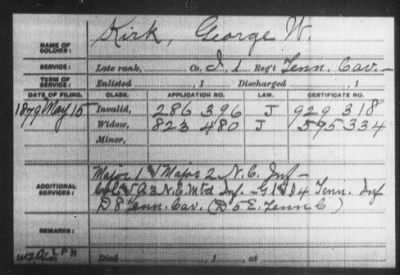 Kirk, George W.
NAME OF SOLDIER:
SERVICE: Late rank, Co. I, 1 Reg't Tenn. Cav.
TERM OF SERVICE: Enlisted , 1 Discharged , 1
DATE OF FILING. CLASS. APPLICATION NO. LAW. CERTIFICATE NO.
1879 May 15 Invalid, 286 396 J 929 318
Widow, 823 480 J 595 334
Minor,
Major 1 Major 2 N.C. Inf
ADDITIONAL SERVICES: Col 3 N.C. Mtd Inf - G 1 D 4 Tenn. Inf
D 8 Tenn. Cav. (D 5 E. Tenn C)
REMARKS:
Died , 1 at